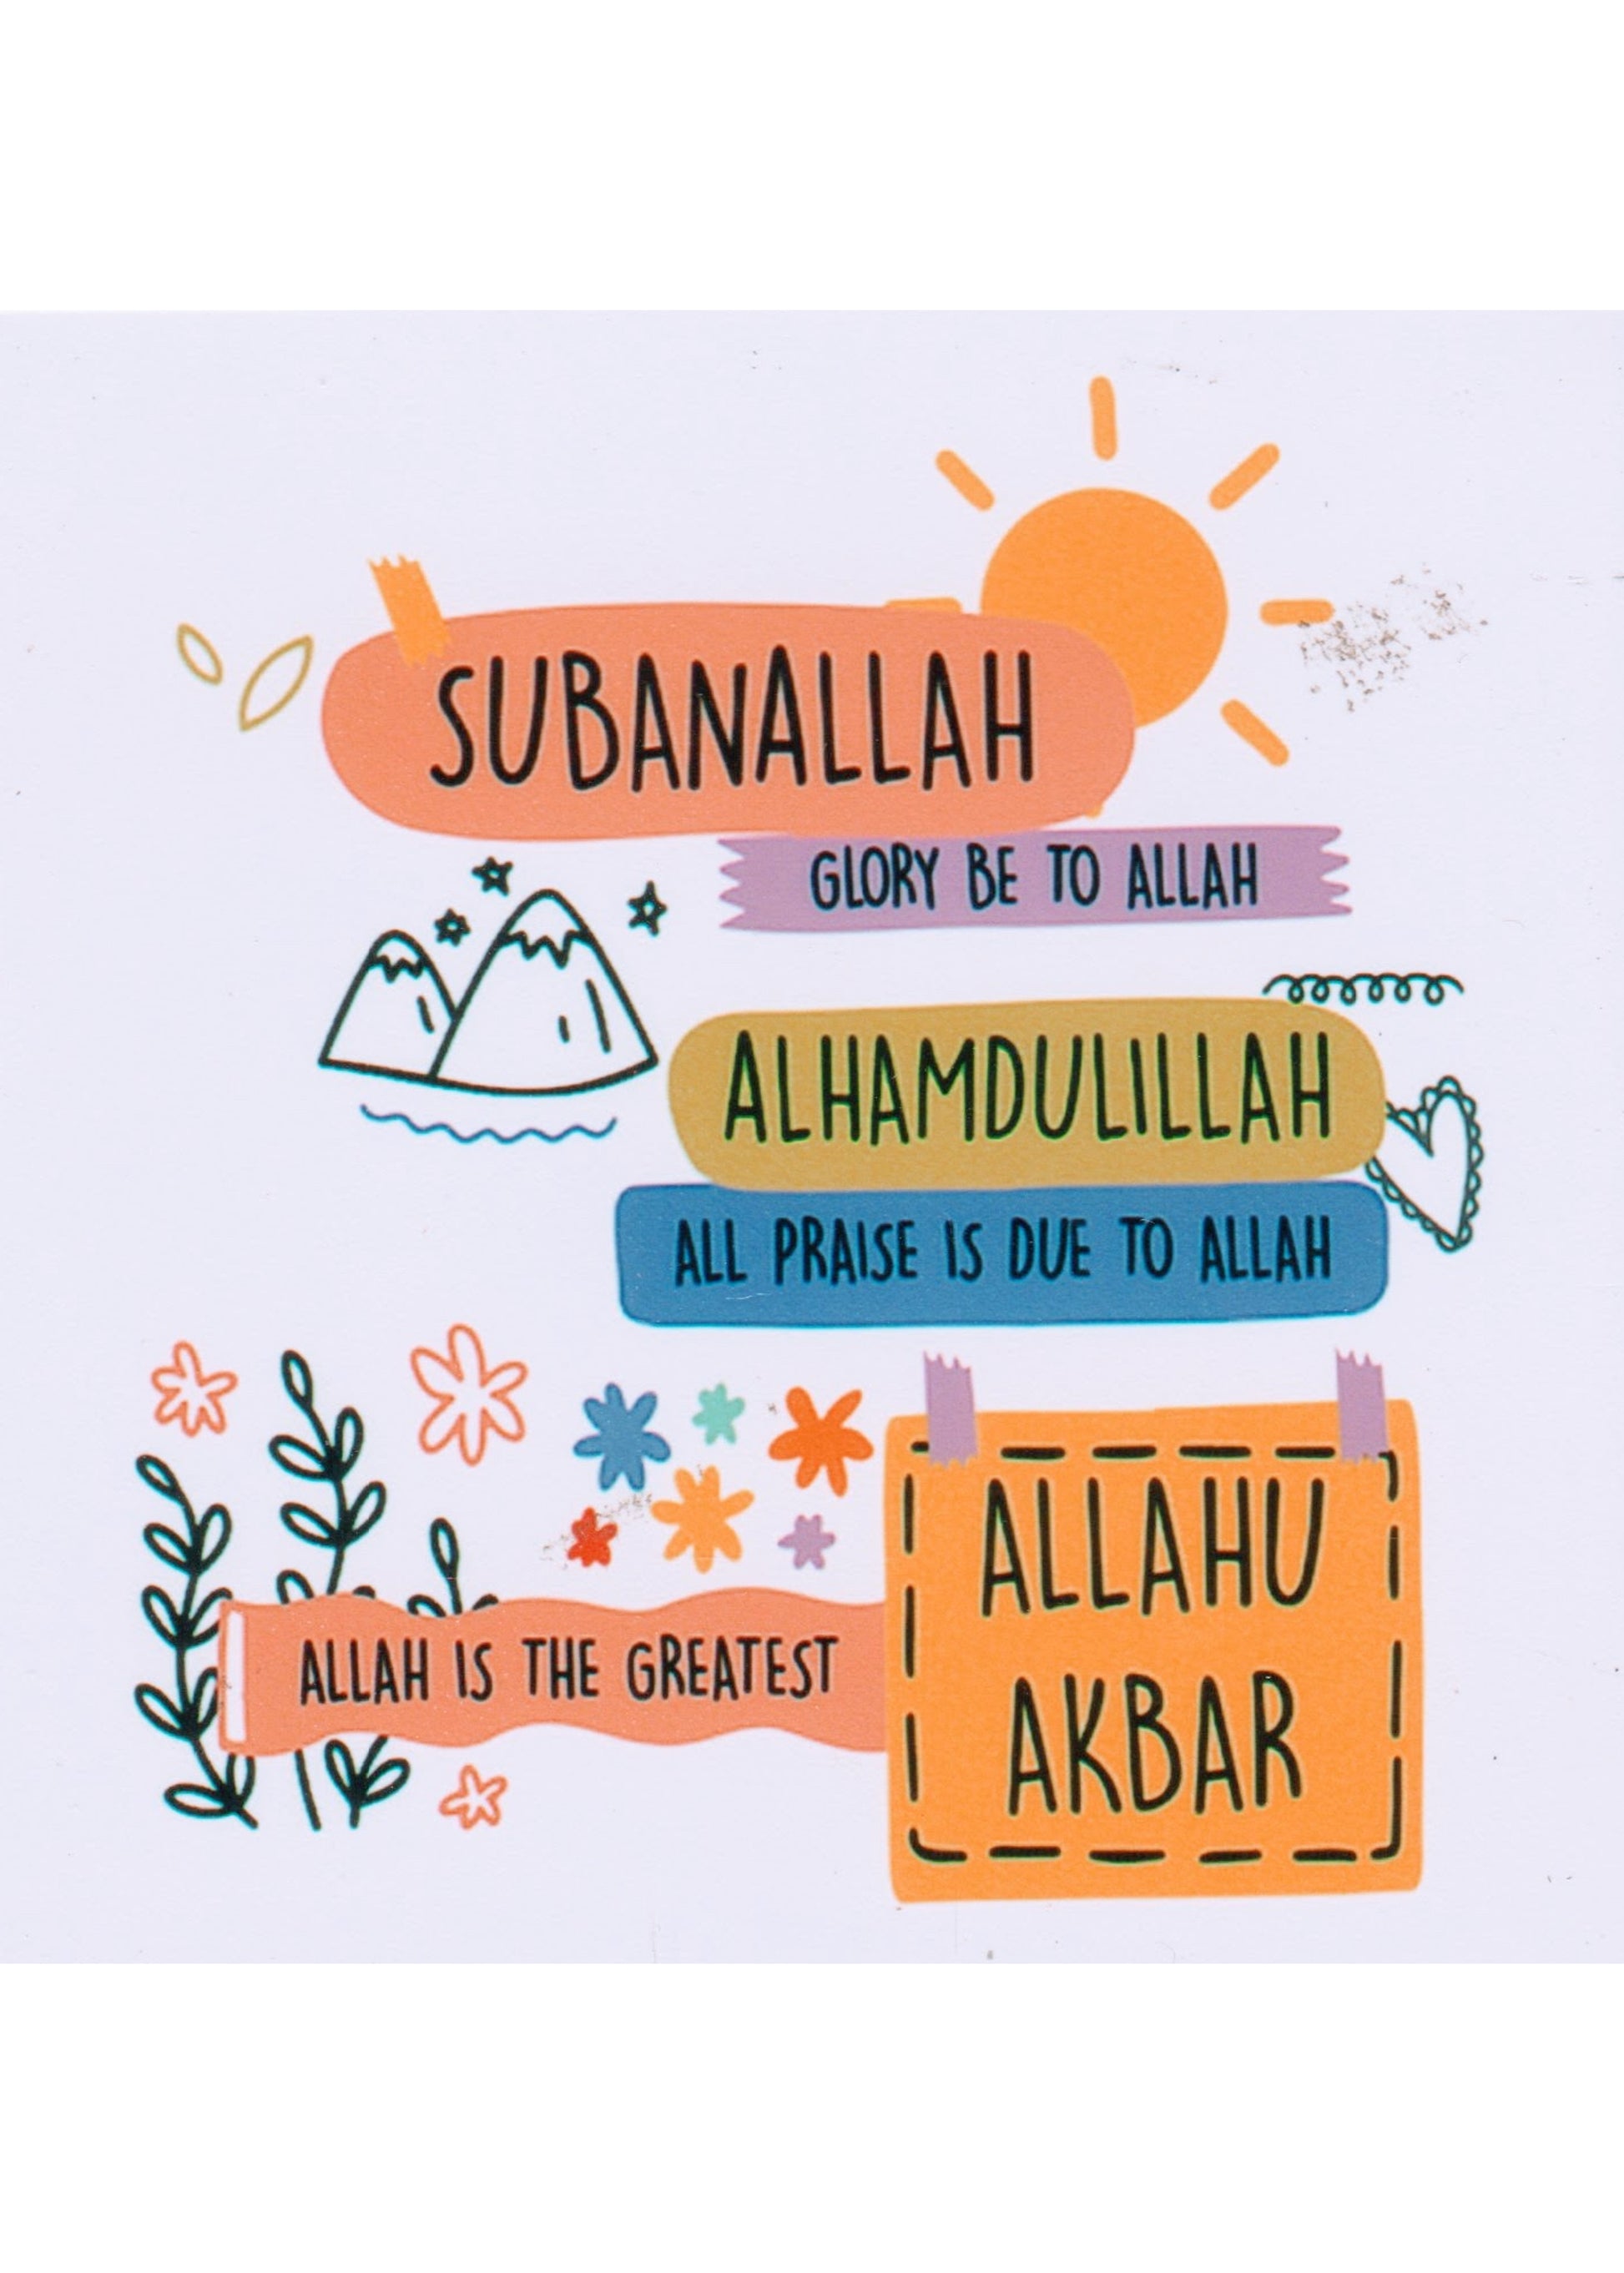 SUBANALLAH
GLORY BE TO ALLAH
ALHAMDULILLAH
ALL PRAISE IS DUE TO ALLAH
ALLAHU
AKBAR
ALLAH IS THE GREATEST